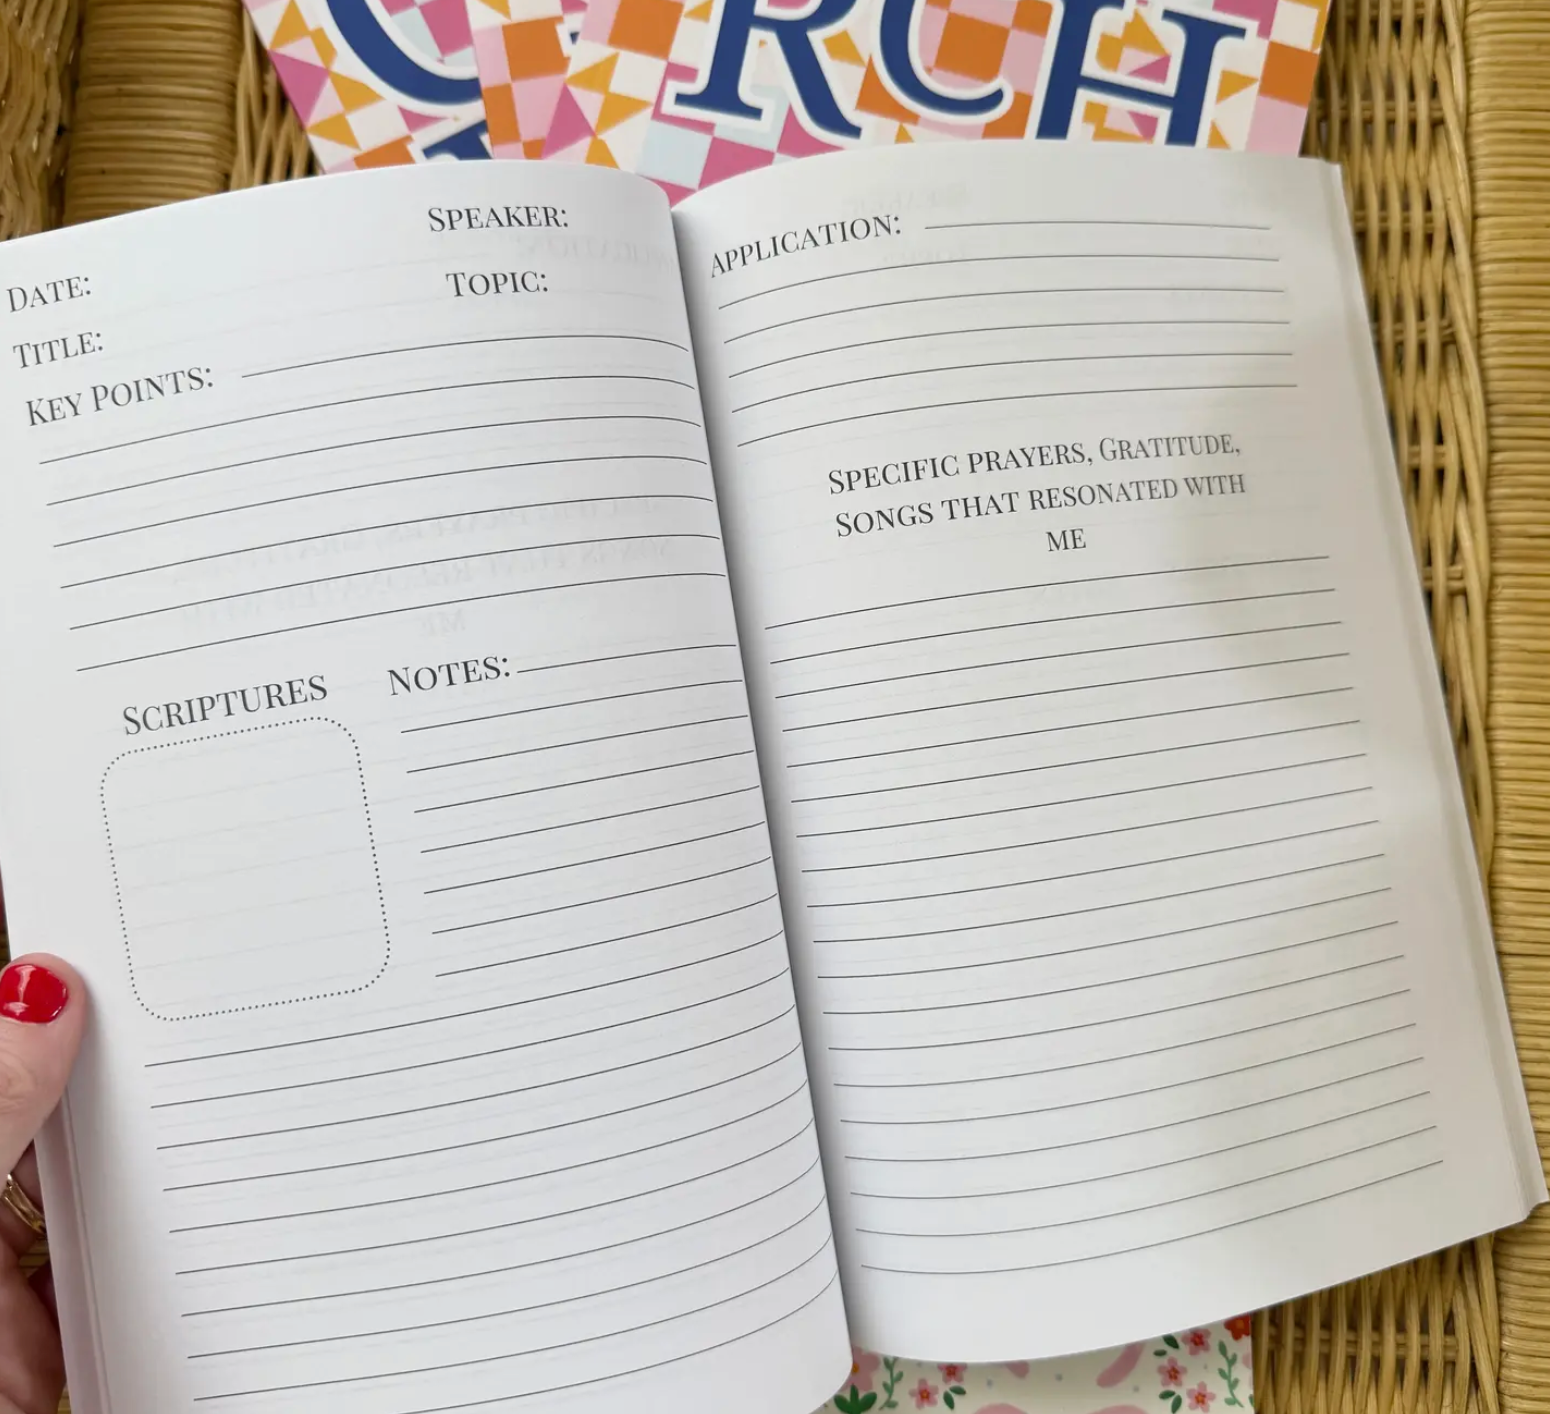 RCH
SPEAKER:
DATE:
TOPIC:
TITLE:
KEY POINTS:
SCRIPTURES
NOTES:
APPLICATION:
SPECIFIC PRAYERS, GRATITUDE,
SONGS THAT RESONATED WITH
ME